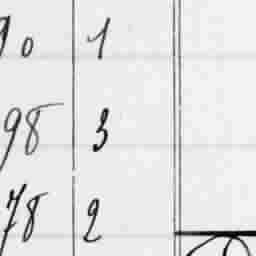 90 1
98 3
78 2